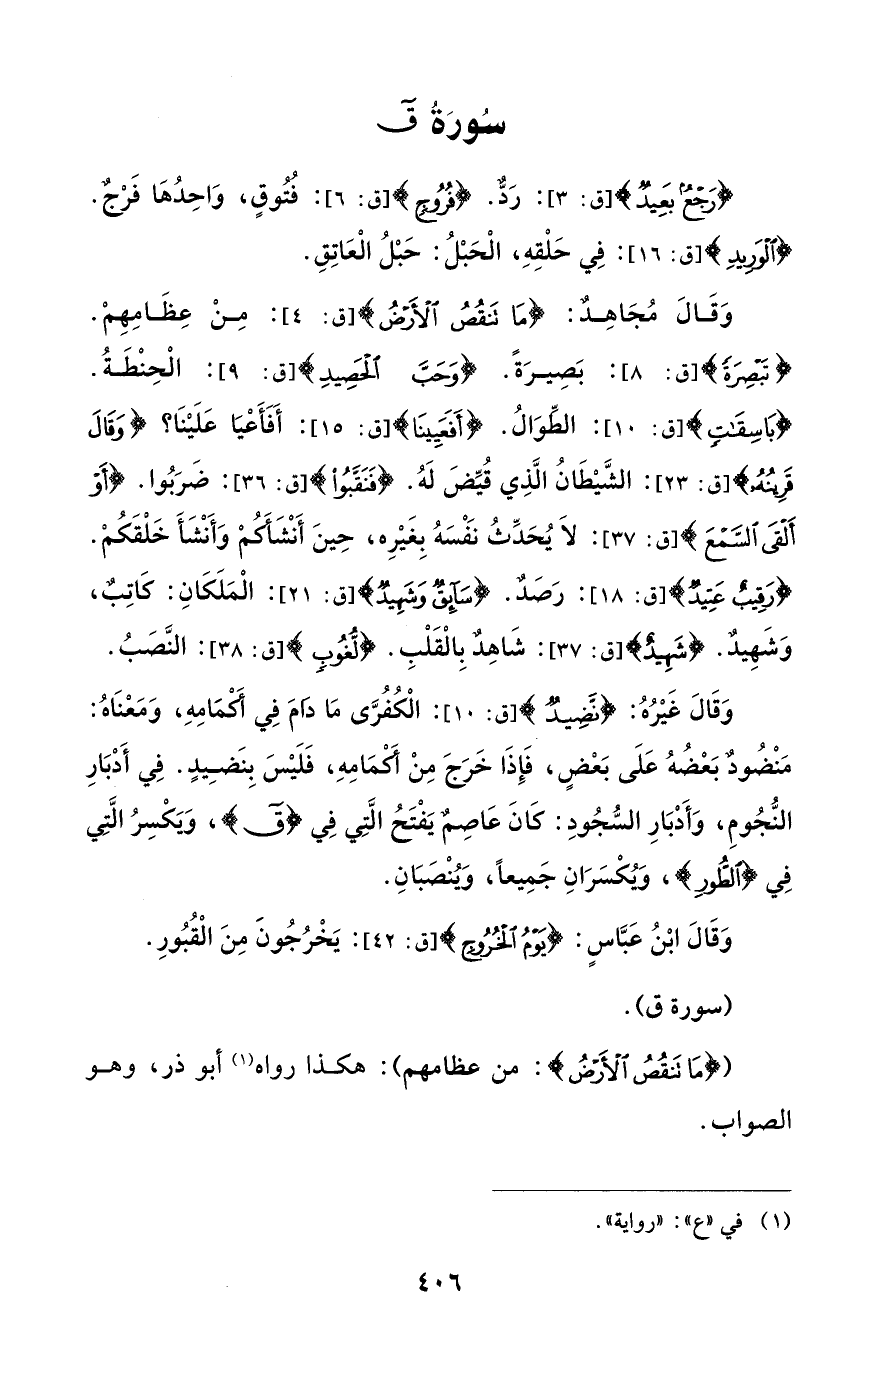 سُورَةُ قٓ
﴿رَجْعٌ بَعِيدٌ﴾[ق: ٣]: رَدٌّ. ﴿فُرُوجٍ﴾[ق: ٦]: فُتُوقٍ، وَاحِدُهَا فَرْجٌ.
﴿ٱلْوَرِيدِ﴾[ق: ١٦]: فِي حَلْقِهِ، الْحَبْلُ: حَبْلُ الْعَاتِقِ.
وَقَالَ مُجَاهِدٌ: ﴿مَا تَنقُصُ ٱلْأَرْضُ﴾[ق: ٤]: مِنْ عِظَامِهِمْ.
﴿تَبْصِرَةً﴾[ق: ٨]: بَصِيرَةً. ﴿وَحَبَّ ٱلْحَصِيدِ﴾[ق: ٩]: الْحِنْطَةُ.
﴿بَاسِقَٰتٍ﴾[ق: ١٠]: الطِّوَالُ. ﴿أَفَعَيِينَا﴾[ق: ١٥]: أَفَأَعْيَا عَلَيْنَا؟ ﴿وَقَالَ
قَرِينُهُۥ﴾[ق: ٢٣]: الشَّيْطَانُ الَّذِي قُيِّضَ لَهُ. ﴿فَنَقَّبُوا۟﴾[ق: ٣٦]: ضَرَبُوا. ﴿أَوْ
أَلْقَى ٱلسَّمْعَ﴾[ق: ٣٧]: لاَ يُحَدِّثُ نَفْسَهُ بِغَيْرِه، حِينَ أَنْشَأَكُمْ وَأَنْشَأَ خَلْقَكُمْ.
﴿رَقِيبٌ عَتِيدٌ﴾[ق: ١٨]: رَصَدٌ. ﴿سَآئِقٌ وَشَهِيدٌ﴾[ق: ٢١]: الْمَلَكَانِ: كَاتِبٌ،
وَشَهِيدٌ. ﴿شَهِيدٌ﴾[ق: ٣٧]: شَاهِدٌ بِالْقَلْبِ. ﴿لُّغُوبٍ﴾[ق: ٣٨]: النَّصَبُ.
وَقَالَ غَيْرُهُ: ﴿نَّضِيدٌ﴾[ق: ١٠]: الْكُفُرَّى مَا دَامَ فِي أَكْمَامِهِ، وَمَعْنَاهُ:
مَنْضُودٌ بَعْضُهُ عَلَى بَعْضٍ، فَإِذَا خَرَجَ مِنْ أَكْمَامِهِ، فَلَيْسَ بِنَضِيدٍ. فِي أَدْبَارِ
النُّجُومِ، وَأَدْبَارِ السُّجُودِ: كَانَ عَاصِمٌ يَفْتَحُ الَّتِي فِي ﴿قٓ﴾، وَيَكْسِرُ الَّتِي
فِي ﴿ٱلطُّورِ﴾، وَيُكْسَرَانِ جَمِيعاً، وَيُنْصَبَانِ.
وَقَالَ ابْنُ عَبَّاسٍ: ﴿يَوْمُ ٱلْخُرُوجِ﴾[ق: ٤٢]: يَخْرُجُونَ مِنَ الْقُبُورِ.
(سورة ق).
(﴿مَا تَنقُصُ ٱلْأَرْضُ﴾: من عظامهم): هكذا رواه(١) أبو ذر، وهو
الصواب.
(١) في «ع»: «رواية».
٤٠٦